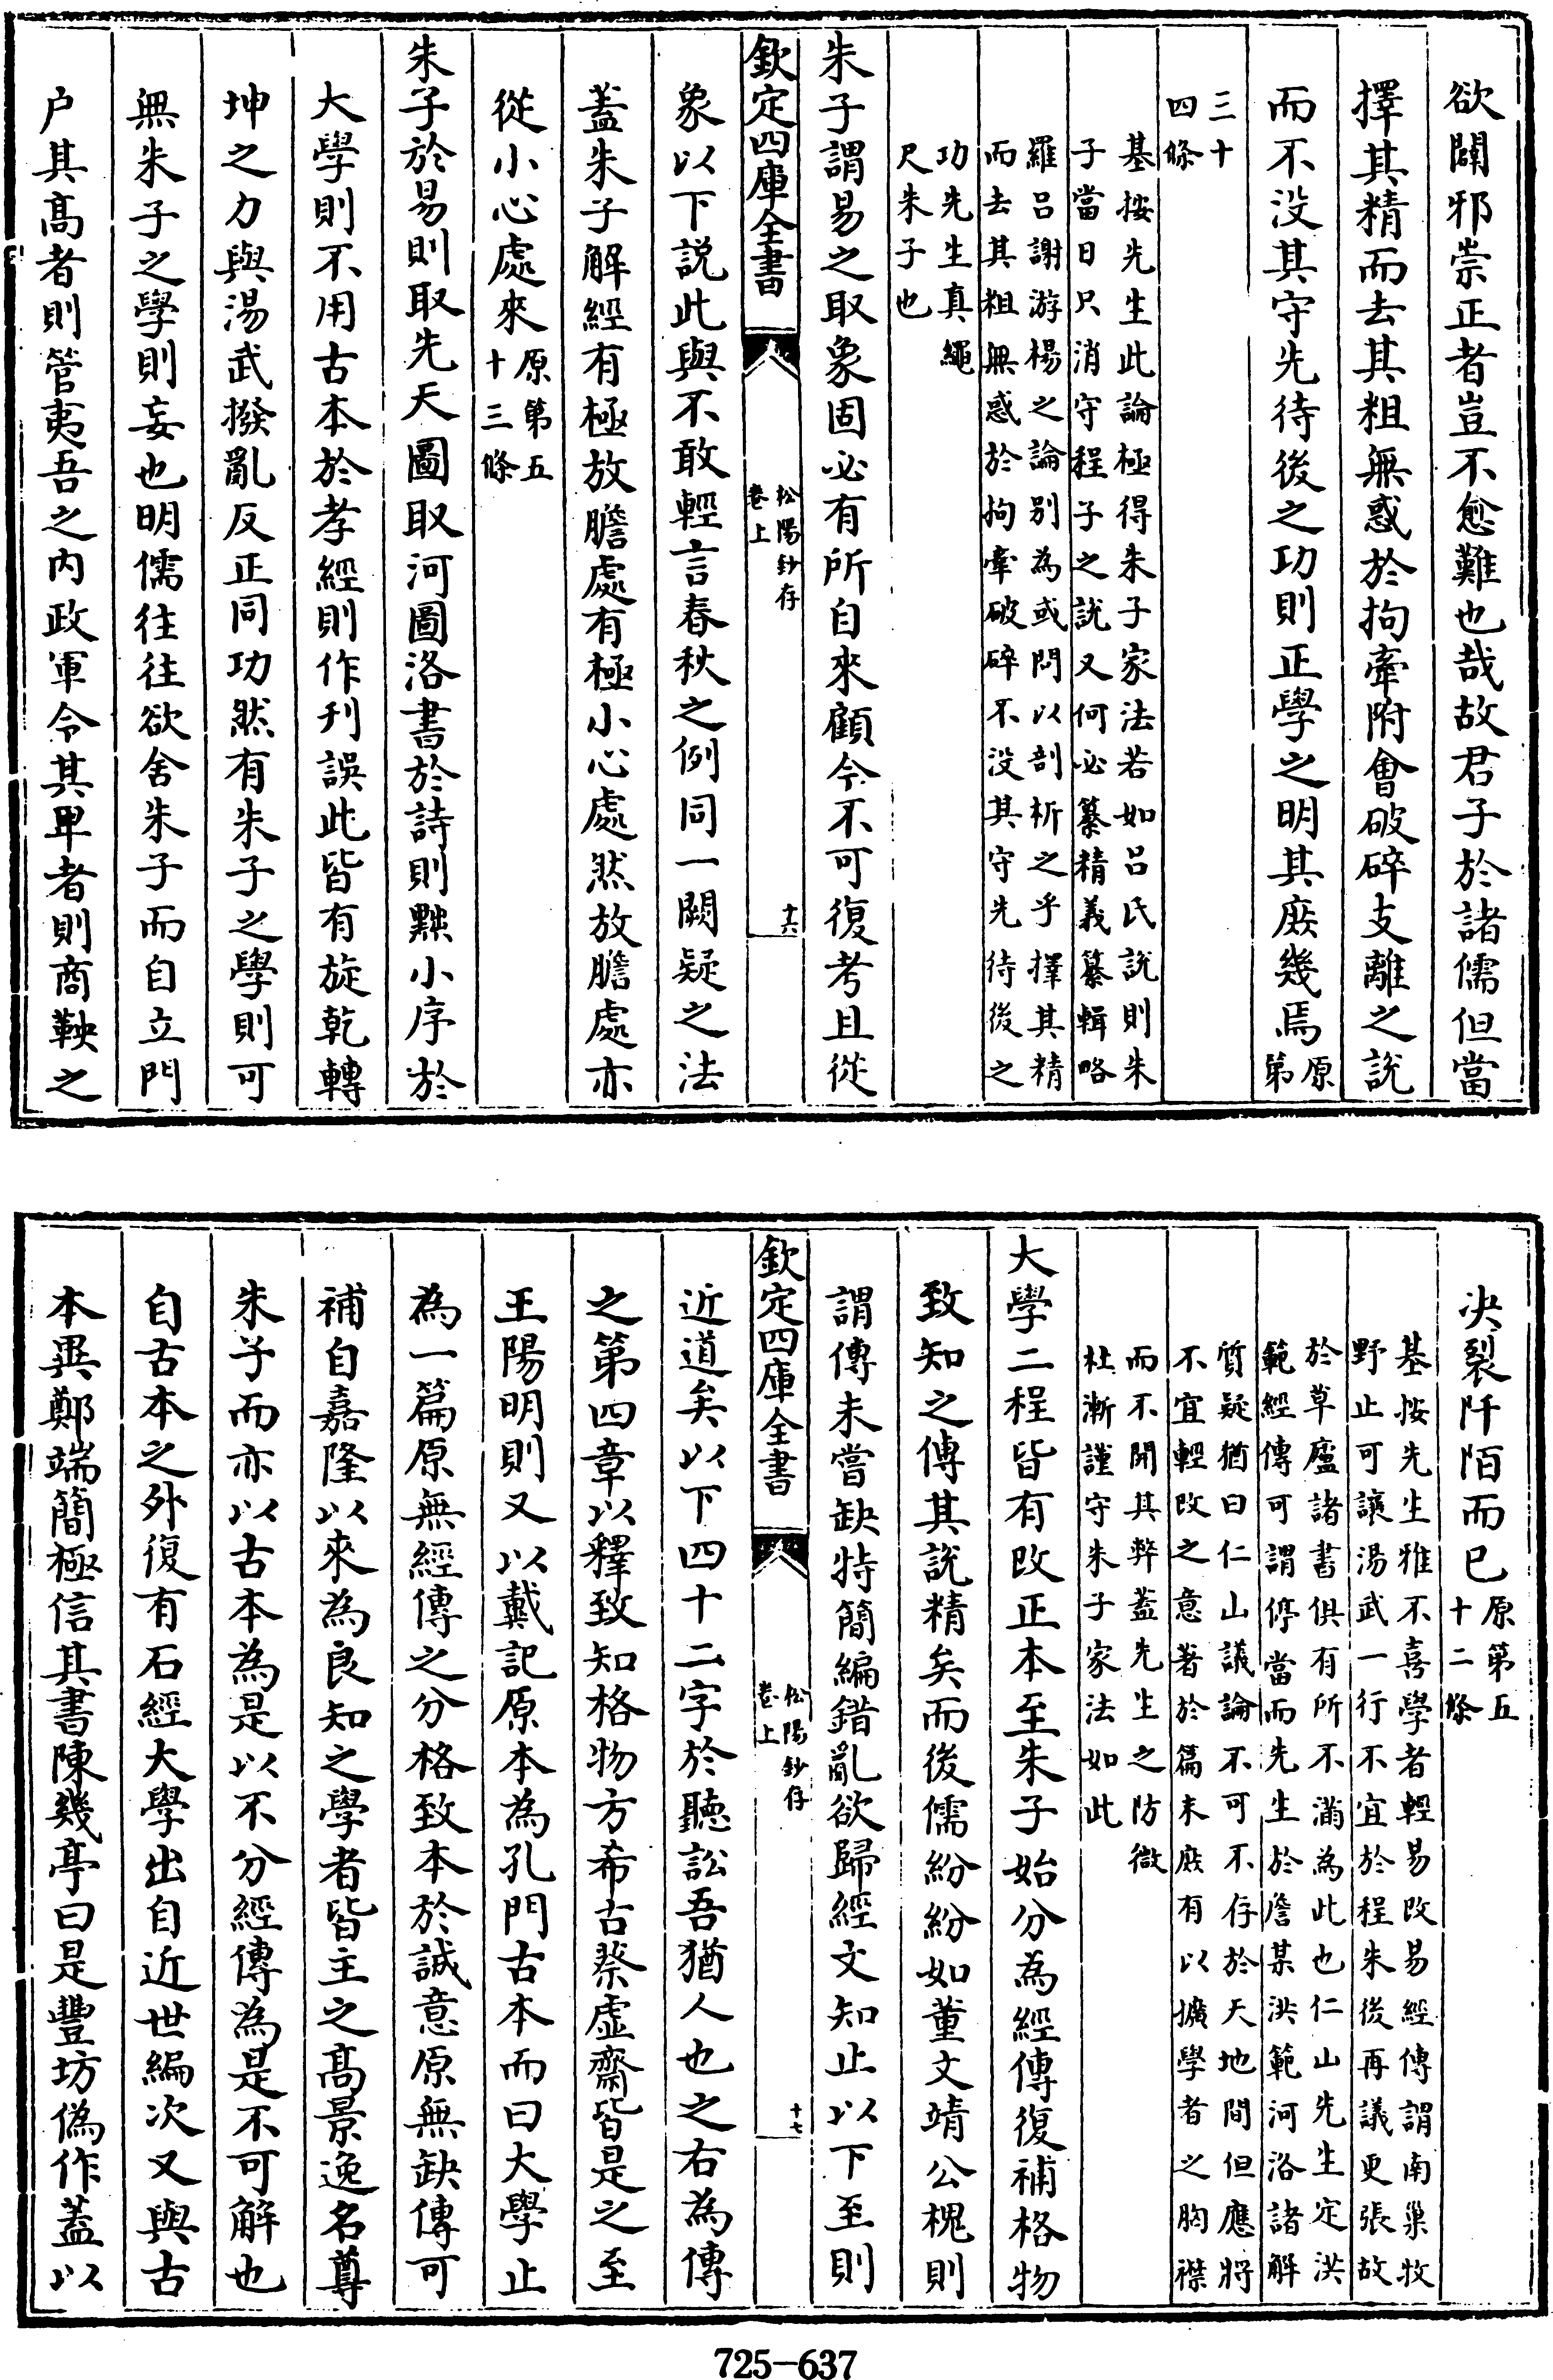 欲闢邪崇正者豈不愈難也哉故君子於諸儒但當
擇其精而去其粗無惑於拘牽附會破碎支離之說
而不没其守先待後之功則正學之明其庶幾焉原第
三十四條
基按先生此論極得朱子家法若如吕氏說則朱
子當日只消守程子之說又何必纂精義纂輯略
羅吕謝游楊之論别為或問以剖析之乎擇其精
而去其粗無惑於拘牽破碎不没其守先待後之
功先生真繩
尺朱子也
朱子謂易之取象固必有所自來顧今不可復考且從
欽定四庫全書
松陽鈔存
卷上
十六
象以下說此與不敢輕言春秋之例同一闕疑之法
蓋朱子解經有極放膽處有極小心處然放膽處亦
從小心處來原第五十三條
朱子於易則取先天圖取河圖洛書於詩則黜小序於
大學則不用古本於孝經則作刋誤此皆有旋乾轉
坤之力與湯武撥亂反正同功然有朱子之學則可
無朱子之學則妄也明儒往往欲舍朱子而自立門
户其髙者則管夷吾之内政軍令其卑者則商鞅之
決裂阡陌而已原第五十二條
基按先生雅不喜學者輕易改易經傳謂南巢牧
野止可讓湯武一行不宜於程朱後再議更張故
於草廬諸書俱有所不滿為此也仁山先生定洪
範經傳可謂停當而先生於詹某洪範河洛諸解
質疑猶曰仁山議論不可不存於天地間但應將
不宜輕改之意著於篇末庶有以擴學者之胸襟
而不開其弊蓋先生之防微
杜漸謹守朱子家法如此
大學二程皆有改正本至朱子始分為經傳復補格物
致知之傳其說精矣而後儒紛紛如董文靖公槐則
謂傳未嘗缺特簡編錯亂欲歸經文知止以下至則
欽定四庫全書
松陽鈔存
卷上
十七
近道矣以下四十二字於聽訟吾猶人也之右為傳
之第四章以釋致知格物方希古蔡虚齋皆是之至
王陽明則又以戴記原本為孔門古本而曰大學止
為一篇原無經傳之分格致本於誠意原無缺傳可
補自嘉隆以來為良知之學者皆主之髙景逸名尊
朱子而亦以古本為是以不分經傳為是不可解也
自古本之外復有石經大學出自近世編次又與古
本異鄭端簡極信其書陳幾亭曰是豐坊偽作蓋以
725-637